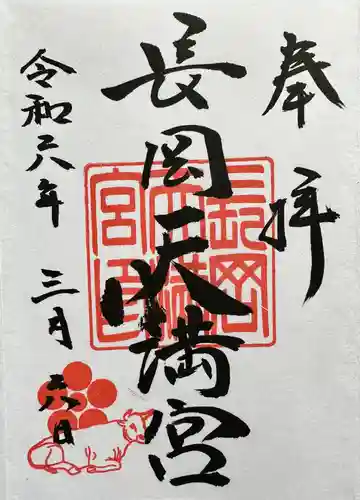 奉拝
長岡天満宮
令和六年
三月六日
長岡天満宮印